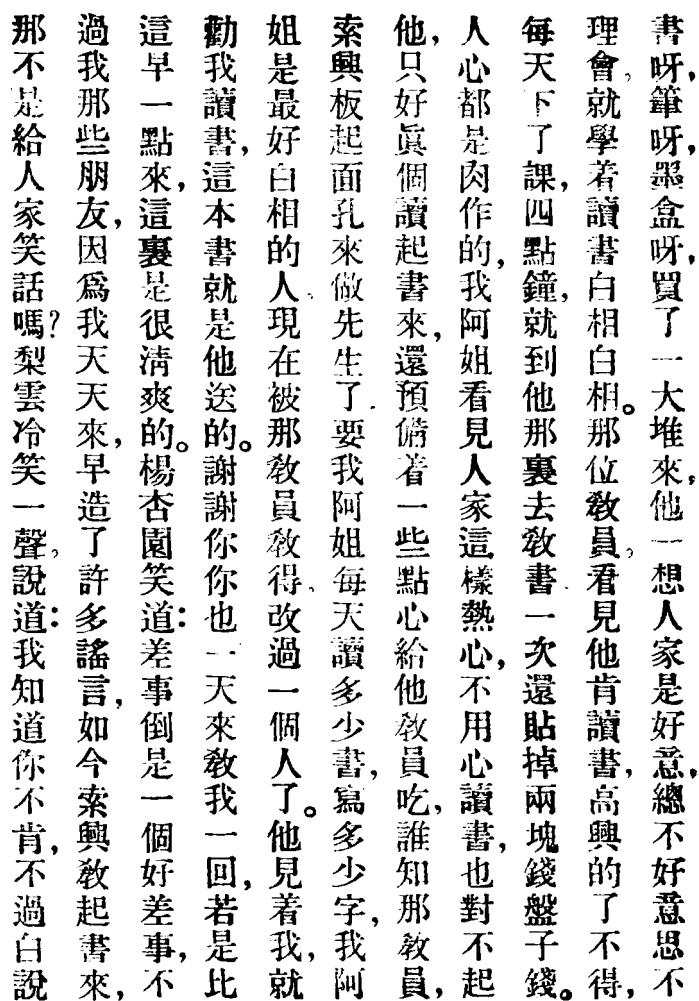 書呀，筆呀，墨盒呀，買了一大堆來，他一想人家是好意，總不好意思不
理會，就學着讀書白相白相。那位教員，看見他肯讀書，高興的了不得，
每天下了課，四點鐘，就到他那裏去教書一次還貼掉兩塊錢盤子錢。
人心都是肉作的，我阿姐看見人家這樣熱心，不用心讀書，也對不起
他，只好眞個讀起書來，還預備着一些點心給他教員吃，誰知那教員，
索興板起面孔來做先生了，要我阿姐每天讀多少書，寫多少字，我阿
姐是最好白相的人，現在被那教員教得，改過一個人了。他見着我，就
勸我讀書，這本書就是他送的。謝謝你你也一天來教我一回，若是比
這早一點來，這裏是很清爽的。楊杏園笑道：差事倒是一個好差事，不
過我那些朋友，因爲我天天來，早造了許多謠言，如今索興教起書來，
那不是給人家笑話嗎？梨雲冷笑一聲，說道：我知道你不肯，不過白說